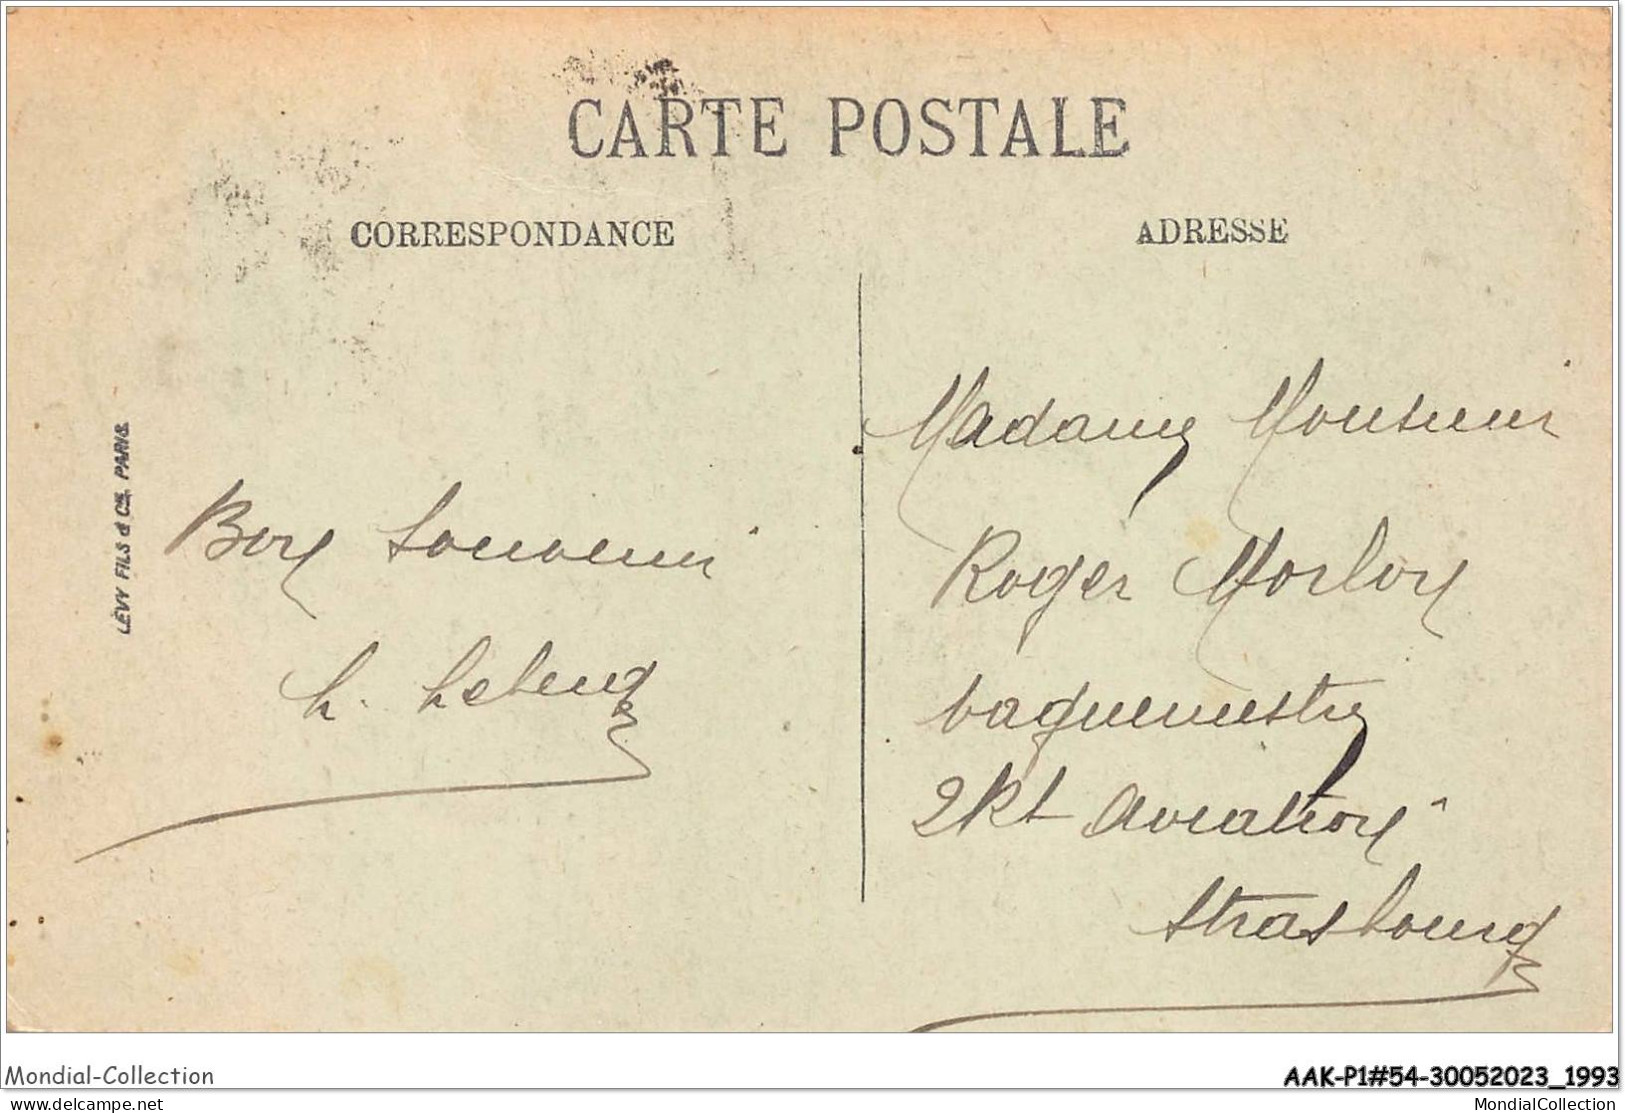 CARTE POSTALE
CORRESPONDANCE
ADRESSE
LÉVY FILS & Cie, PARIS.
Bon Souvenir
h.
Madame Monsieur
Roger Morlon
vaguemestre
2 Rt Aviation
Strasbourg
Mondial-Collection
AAK-P1#54-30052023_1993
delcampe.net
MondialCollection